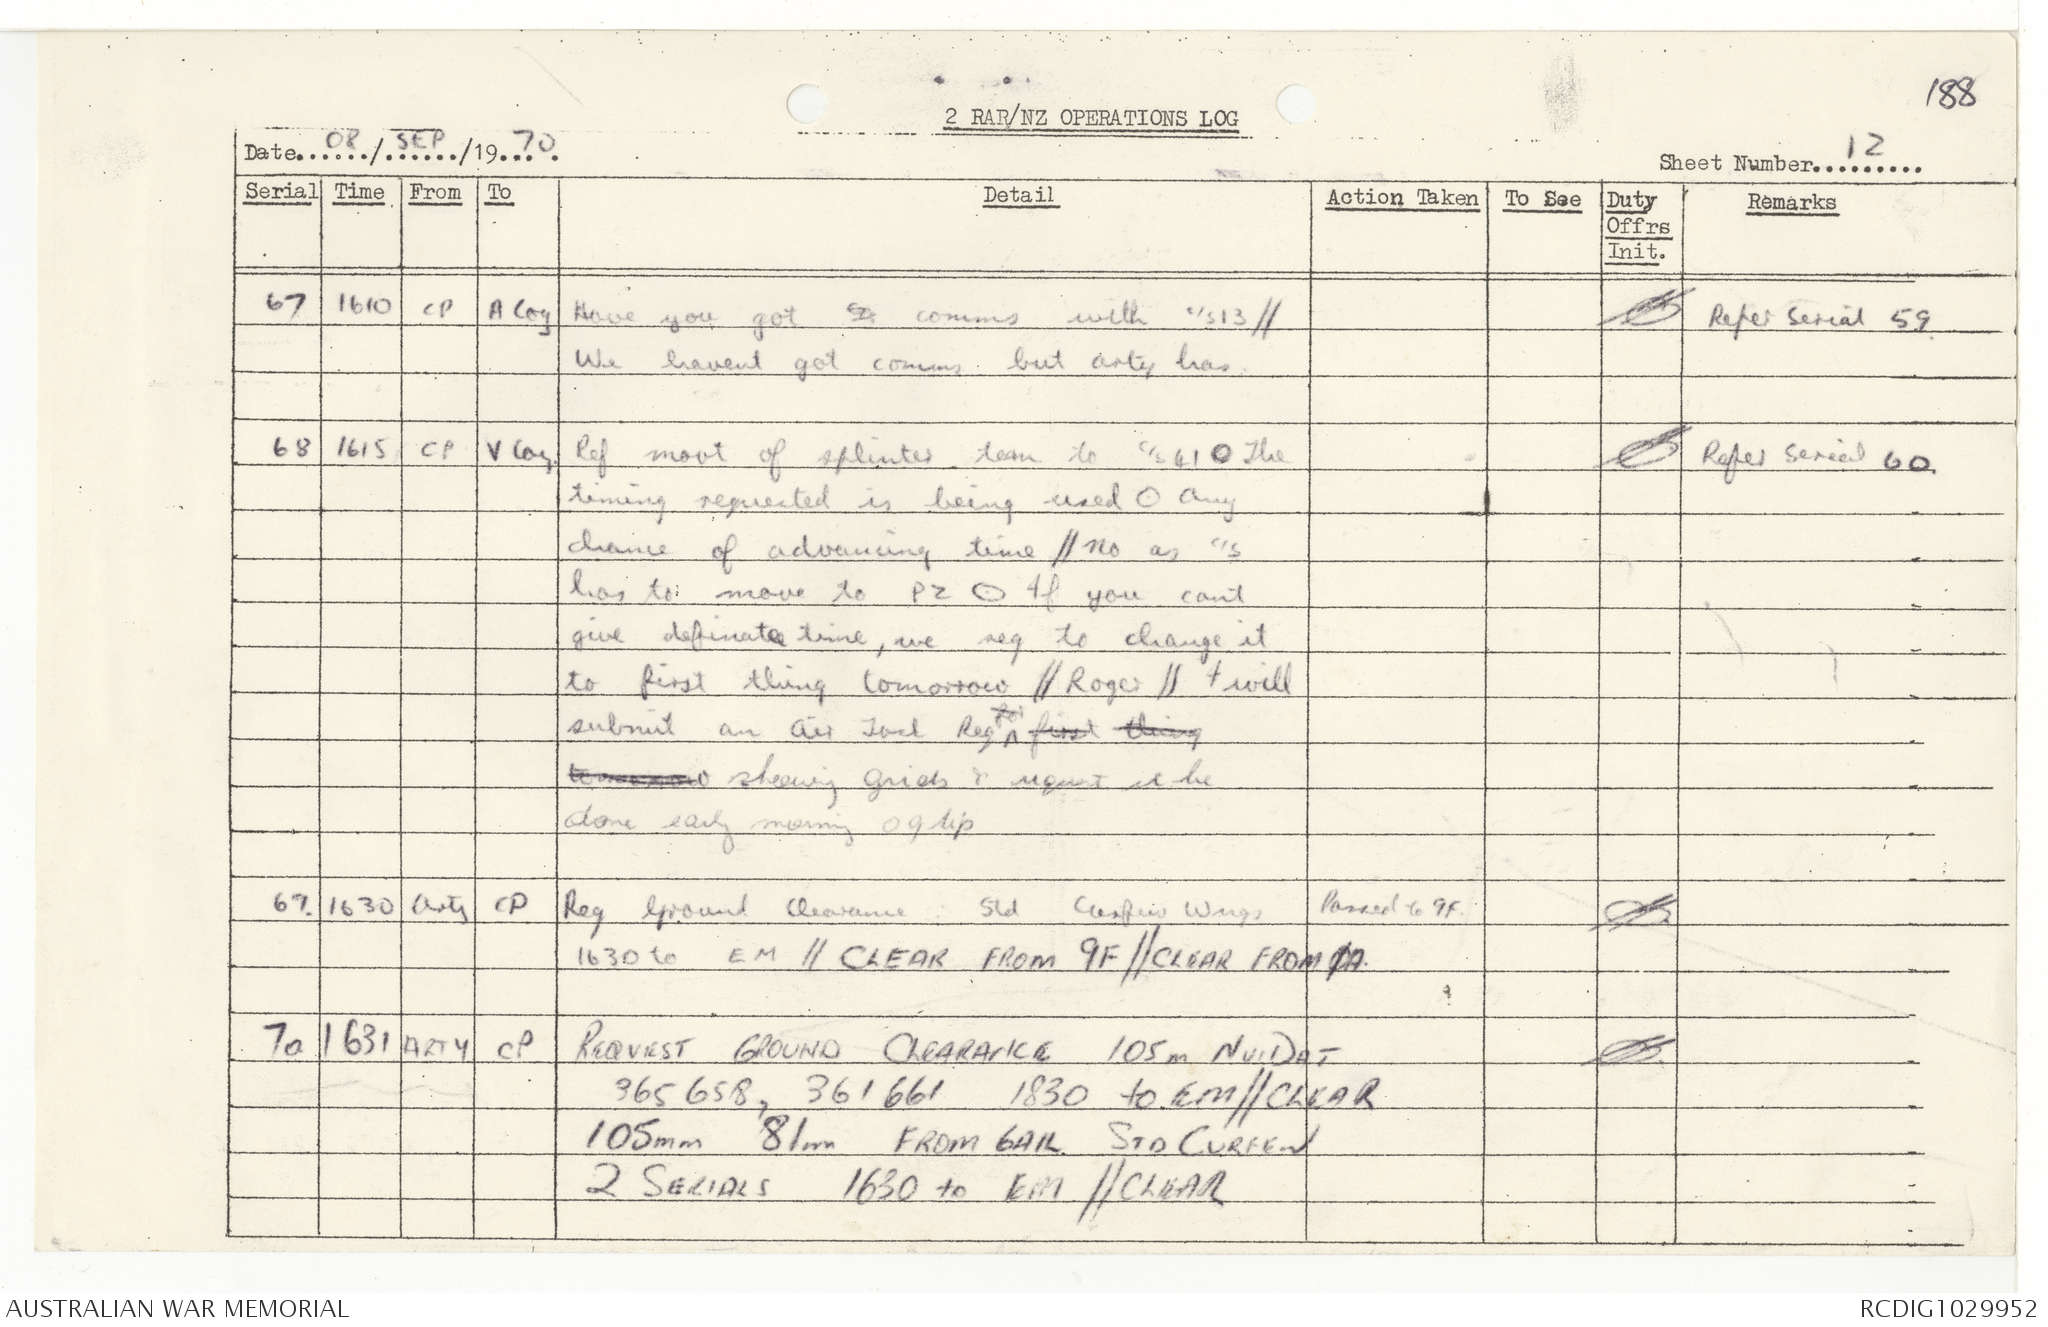 188
2 RAR/NZ OPERATIONS LOG
Date...08.../...SEP.../19...70...
Sheet Number...12......
Serial Time From To Detail Action Taken To See Duty Offrs Init. Remarks
67 1610 CP A Coy Have you got comms with c/s 13 // Refer Serial 59.
We havent got comms but arty has.
68 1615 CP V Coy Ref movt of splinter team to c/s 41 O The Refer Serial 60.
timing requested is being used O Any
chance of advancing time // No as c/s
has to move to PZ O If you cant
give definate time, we req to change it
to first thing tomorrow // Roger // I will
submit an Air Task Req for first thing
tomorrow showing Grids & request it be
done early morning 09 Sep
69. 1630 Arty CP Req Ground Clearance Std Curfew Passed to 9F.
1630 to EM // CLEAR FROM 9F // CLEAR FROM
70 1631 ARTY CP REQUEST GROUND CLEARANCE 105m NUIDAT
365658, 361661 1830 to EM // CLEAR
105mm 81mm FROM GAIL STD CURFEW
2 SERIALS 1630 to EM // CLEAR
AUSTRALIAN WAR MEMORIAL
RCDIG1029952